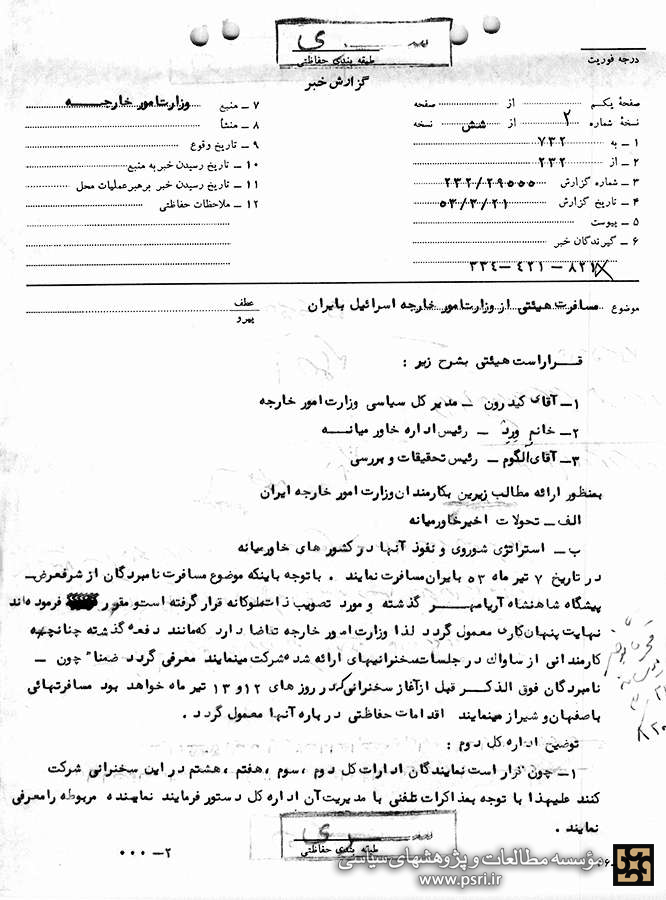 سری
طبقه بندی حفاظتی
گزارش خبر
درجه فوریت
صفحهٔ یکم از صفحه
نسخهٔ شماره ۲ از شش نسخه
۱ – به ۷۳۲
۲ – از ۲۳۲
۳ – شماره گزارش ۲۳۲/۲۹۵۵۵
۴ – تاریخ گزارش ۵۳/۳/۲۱
۵ – پیوست
۶ – گیرندگان خبر
۳۳۴-۴۲۱-۸۲۱
۷ – منبع وزارت امور خارجه
۸ – منشأ
۹ – تاریخ وقوع
۱۰ – تاریخ رسیدن خبر به منبع
۱۱ – تاریخ رسیدن خبر برهبر عملیات محل
۱۲ – ملاحظات حفاظتی
موضوع مسافرت هیئتی از وزارت امور خارجه اسرائیل بایران
عطف
پیرو
قرار است هیئتی بشرح زیر :
۱– آقای کیدرون – مدیر کل سیاسی وزارت امور خارجه
۲– خانم ورد – رئیس اداره خاور میانه
۳– آقای الگوم – رئیس تحقیقات و بررسی
بمنظور ارائه مطالب زیرین بکارمندان وزارت امور خارجه ایران
الف – تحولات اخیر خاورمیانه
ب – استراتژی شوروی و نفوذ آنها در کشور های خاورمیانه
در تاریخ ۷ تیر ماه ۵۳ بایران مسافرت نمایند . با توجه باینکه موضوع مسافرت نامبردگان از شرفعرض
پیشگاه شاهنشاه آریامهر گذشته و مورد تصویب ذات ملوکانه قرار گرفته است و مقرر فرموده اند
نهایت پنهان کاری معمول گردد لذا وزارت امور خارجه تقاضا دارد که مانند دفعه گذشته چنانچه
کارمندانی از ساواک در جلسات سخنرانیهای ارائه شده شرکت مینمایند معرفی گردد ضمنا" چون –
نامبردگان فوق الذکر قبل از آغاز سخنرانی که در روز های ۱۲و ۱۳ تیر ماه خواهد بود مسافرتهائی
باصفهان و شیراز مینمایند اقدامات حفاظتی در باره آنها معمول گردد .
توضیح اداره کل دوم :
۱– چون قرار است نمایندگان ادارات کل دوم ،سوم ،هفتم ،هشتم در این سخنرانی شرکت
کنند علیهذا با توجه بمذاکرات تلفنی با مدیریت آن اداره کل دستور فرمایند نماینده مربوطه را معرفی
نمایند .
سری
طبقه بندی حفاظتی
۲– ۰۰۰
مؤسسه مطالعات و پژوهشهای سیاسی
www.psri.ir